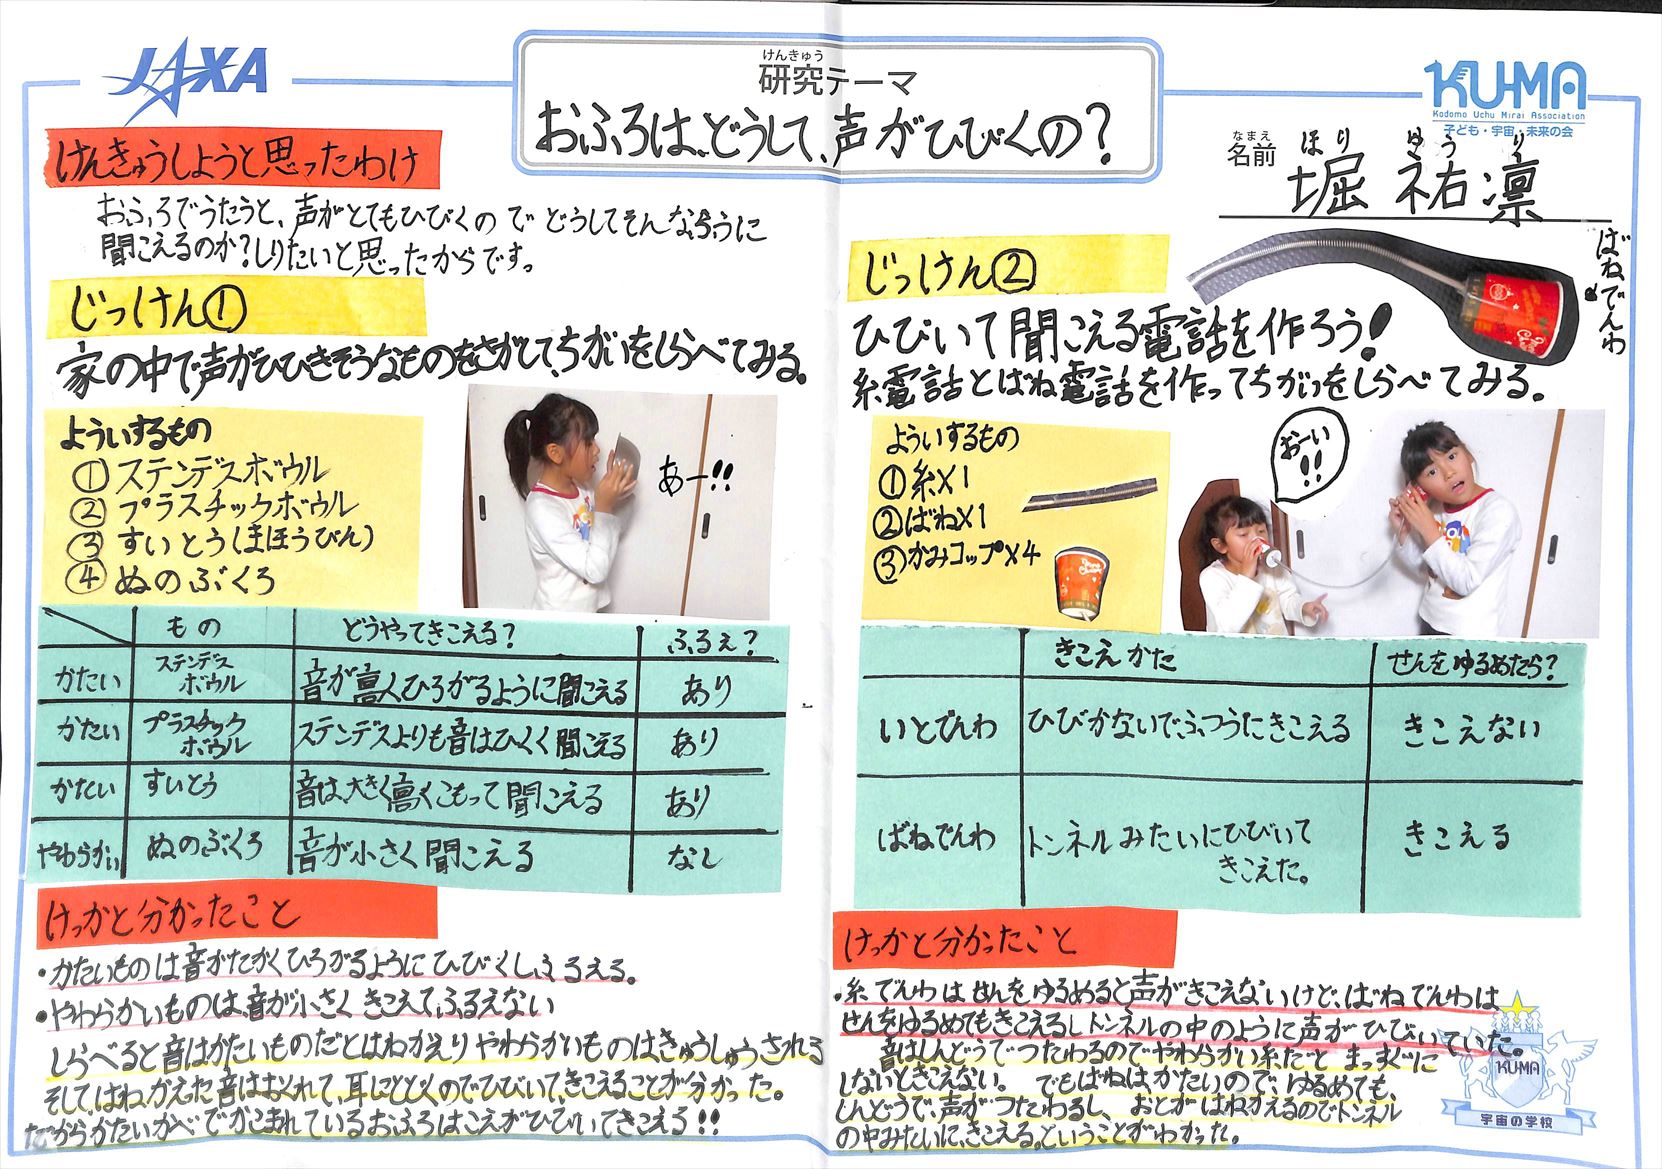 JAXA
けんきゅう
研究テーマ
おふろは、どうして、声がひびくの?
KU-MA
Kodomo Uchu Mirai Association
子ども・宇宙・未来の会
なまえ
名前
ほり ゆうり
堀 祐凛
けんきゅうしようと思ったわけ
おふろでうたうと、声がとてもひびくので どうしてそんなふうに
聞こえるのか?しりたいと思ったからです。
じっけん①
家の中で声がひびきそうなものをさがして、ちがいをしらべてみる。
よういするもの
① ステンデスボウル
② プラスチックボウル
③ すいとう(まほうびん)
④ ぬのぶくろ
あー!!
もの どうやってきこえる? ふるえ?
かたい ステンデスボウル 音が高くひろがるように聞こえる あり
かたい プラスチックボウル ステンデスよりも音はひくく聞こえる あり
かたい すいとう 音は、大きく高くこもって聞こえる あり
やわらかい ぬのぶくろ 音が小さく聞こえる なし
けっかと分かったこと
・かたいものは音がたかくひろがるようにひびくし、ふるえる。
・やわらかいものは、音が小さくきこえて、ふるえない
しらべると音はかたいものだとはねかえりやわらかいものはきゅうしゅうされる
そして、はねかえた音はおくれて、耳にとどくのでひびいて、きこえることが分かった。
だからかたいかべでかこまれているおふろはこえがひびいてきこえる!!
じっけん②
ばねでんわ
ひびいて聞こえる電話を作ろう!
糸電話とばね電話を作ってちがいをしらべてみる。
よういするもの
①糸×1
②ばね×1
③かみコップ×4
おーい!!
きこえかた せんをゆるめたら?
いとでんわ ひびかないで、ふつうたきこえる きこえない
ばねでんわ トンネルみたいにひびいてきこえた。 きこえる
けっかと分かったこと
・糸でんわはせんをゆるめると声がきこえないけど、ばねでんわは
せんをゆるめてもきこえるしトンネルの中のように声がひびいていた。
音はしんどうでつたわるのでやわらかい糸だとまっすぐに
しないときこえない。でもばねはかたいので、ゆるめても、
しんどうで、声がつたわるし、おとがはねかえるのでトンネル
の中みたいに、きこえる。ということがわかった。
KUMA
宇宙の学校